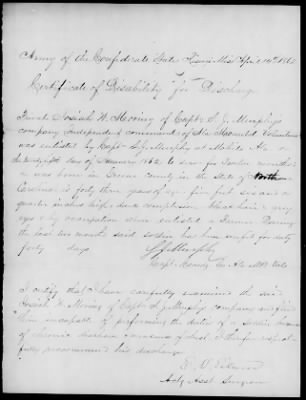 Army of the Confederate States Miss April 14th 1862
Certificate of Disability for Discharge
Private Josiah W. Moring of Capt S. J. Murphy's
company Independent command of Ala Mounted Volunteers
was enlisted by Capt S J Murphy at Mobile Ala. on
the day of January 1862 to serve for Twelve months
He was born in Greene county in the State of North
Carolina is forty three years of age five feet six and a
quarter inches high, dark complexion, black hair, gray
eyes & by occupation when enlisted a Farmer. During
the last two months said soldier has been unfit for duty
forty days S J Murphy
Capt. Comdg Co. Ala Mtd Vols
I certify that I have carefully examined the said
Josiah W. Moring of Capt S. J. Murphys company and find
him incapable of performing the duties of a soldier because
of chronic I therefore respect
fully recommend his discharge.
Actg Asst Surgeon